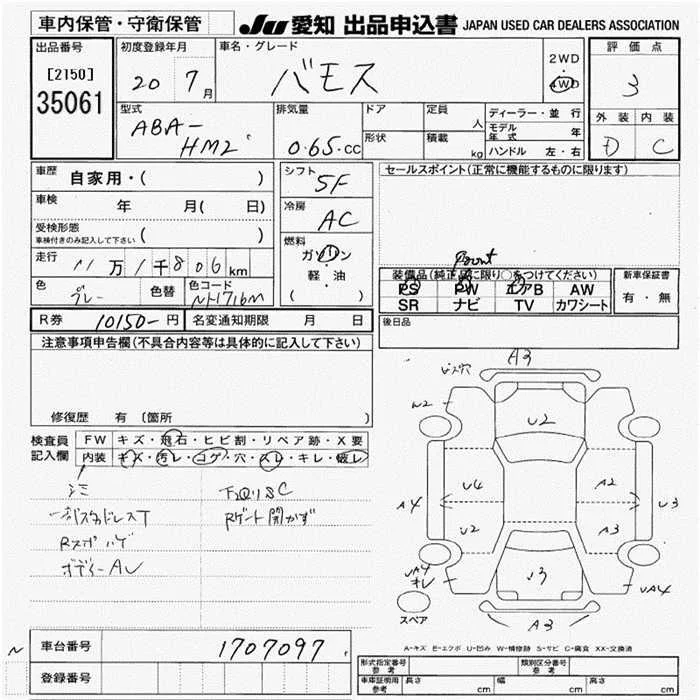 車内保管・守衛保管 JU 愛知 出品申込書 JAPAN USED CAR DEALERS ASSOCIATION
出品番号 初度登録年月 車名・グレード 評価点
[2150] 20 7月 バモス 2WD・4WD 3
35061
型式 排気量 ドア 定員 人 ディーラー・並行 外装 内装
ABA-HM2 0.65cc 形状 積載 kg モデル年式 年 D C
ハンドル 左・右
車歴 自家用・( ) シフト 5F セールスポイント(正常に機能するものに限ります)
車検 年 月( 日) 冷房 AC
受検形態 車検付きのみ記入して下さい ( )
走行 11万1千806km 燃料 ガソリン・軽油 ( )
Front
装備品(純正品に限り○をつけてください) 新車保証書
PS PW エアB AW 有・無
SR ナビ TV カワシート
色 グレー 色替 色コード NH1716M
R券 10150-円 名変通知期限 月 日 後日品
注意事項申告欄(不具合内容等は具体的に記入して下さい)
修復歴 有 〔箇所
検査員記入欄 FW キズ・飛石・ヒビ割・リペア跡・X要
内装 キズ・汚レ・コゲ・穴・スレ・キレ・破レ
シミ
一部スタッドレスT Rゲート開かず
Rスポハゲ
ボディーAU
ビス穴 A3
U2 U2
U4 A2
A4 U3
U2 A3
UA4 オレ U3 UA4
スペア A3
A-キズ E-エクボ U-凹み W-補修跡 S-サビ C-腐食 XX-交換済
車台番号 1707097
登録番号
形式指定番号 参考 類別区分番号 参考
車庫証明用 参考 長さ cm 幅 cm 高さ cm